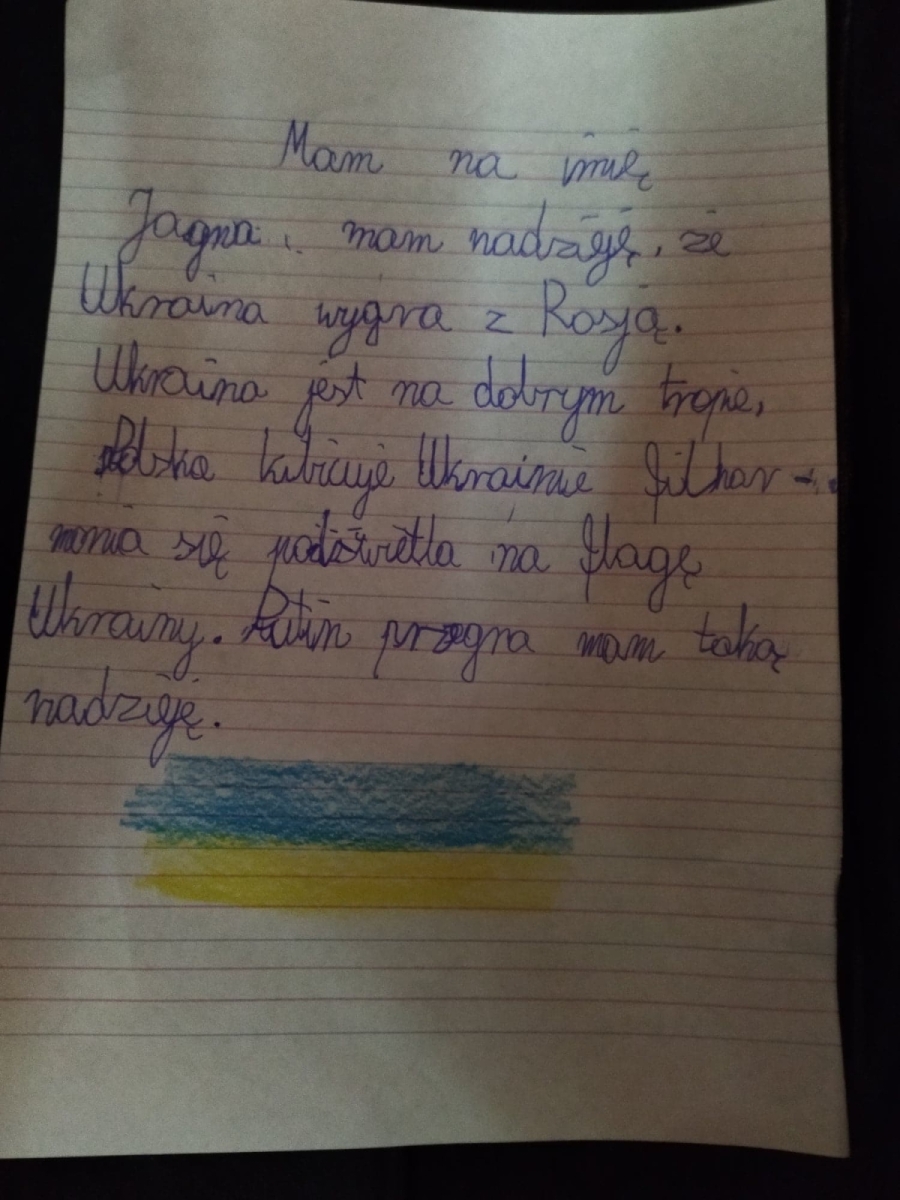 Mam na imię
Jagna i mam nadzieję, że
Ukraina wygra z Rosją.
Ukraina jest na dobrym tropie,
Polska kibicuje Ukrainie filhar-
monia się podświetla na flagę
Ukrainy. Putin przegra mam taką
nadzieję.